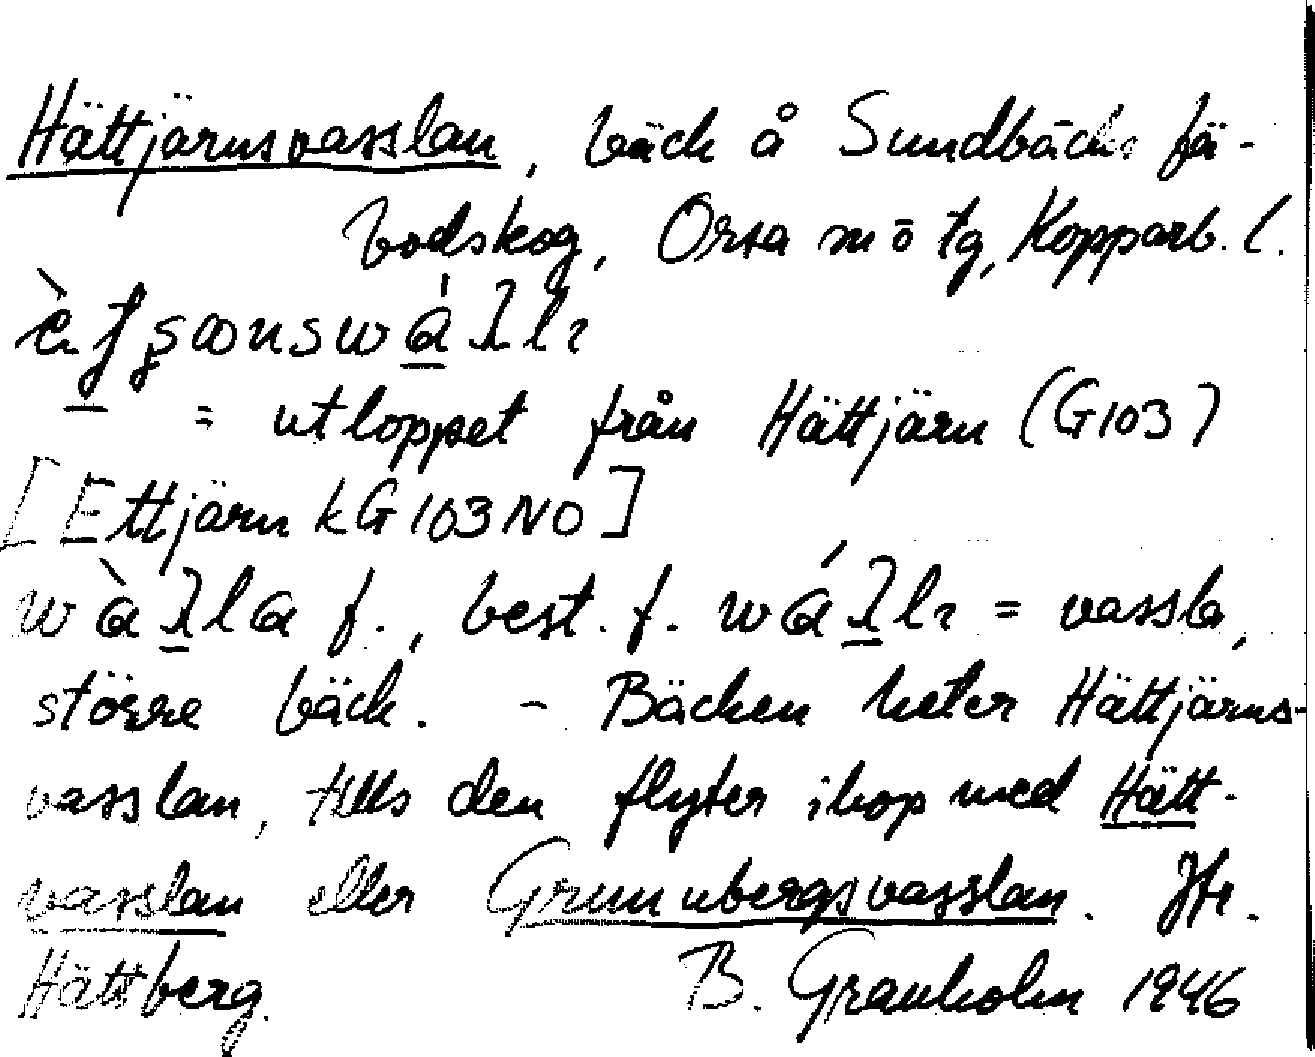 Hättjärnsvasslan, bäck å Sundbäcks fä-
bodskog, Orsa sn ö tg, Kopparb. l.
= utloppet från Hättjärn (G103)
[Ettjärn kG103NO]
f., best. f. = vassla,
större bäck. - Bäcken heter Hättjärns-
vasslan, tills den flyter ihop med Hätt-
vasslan eller Grunubergsvasslan. Jfr.
Hättberg. B. Granholm 1946